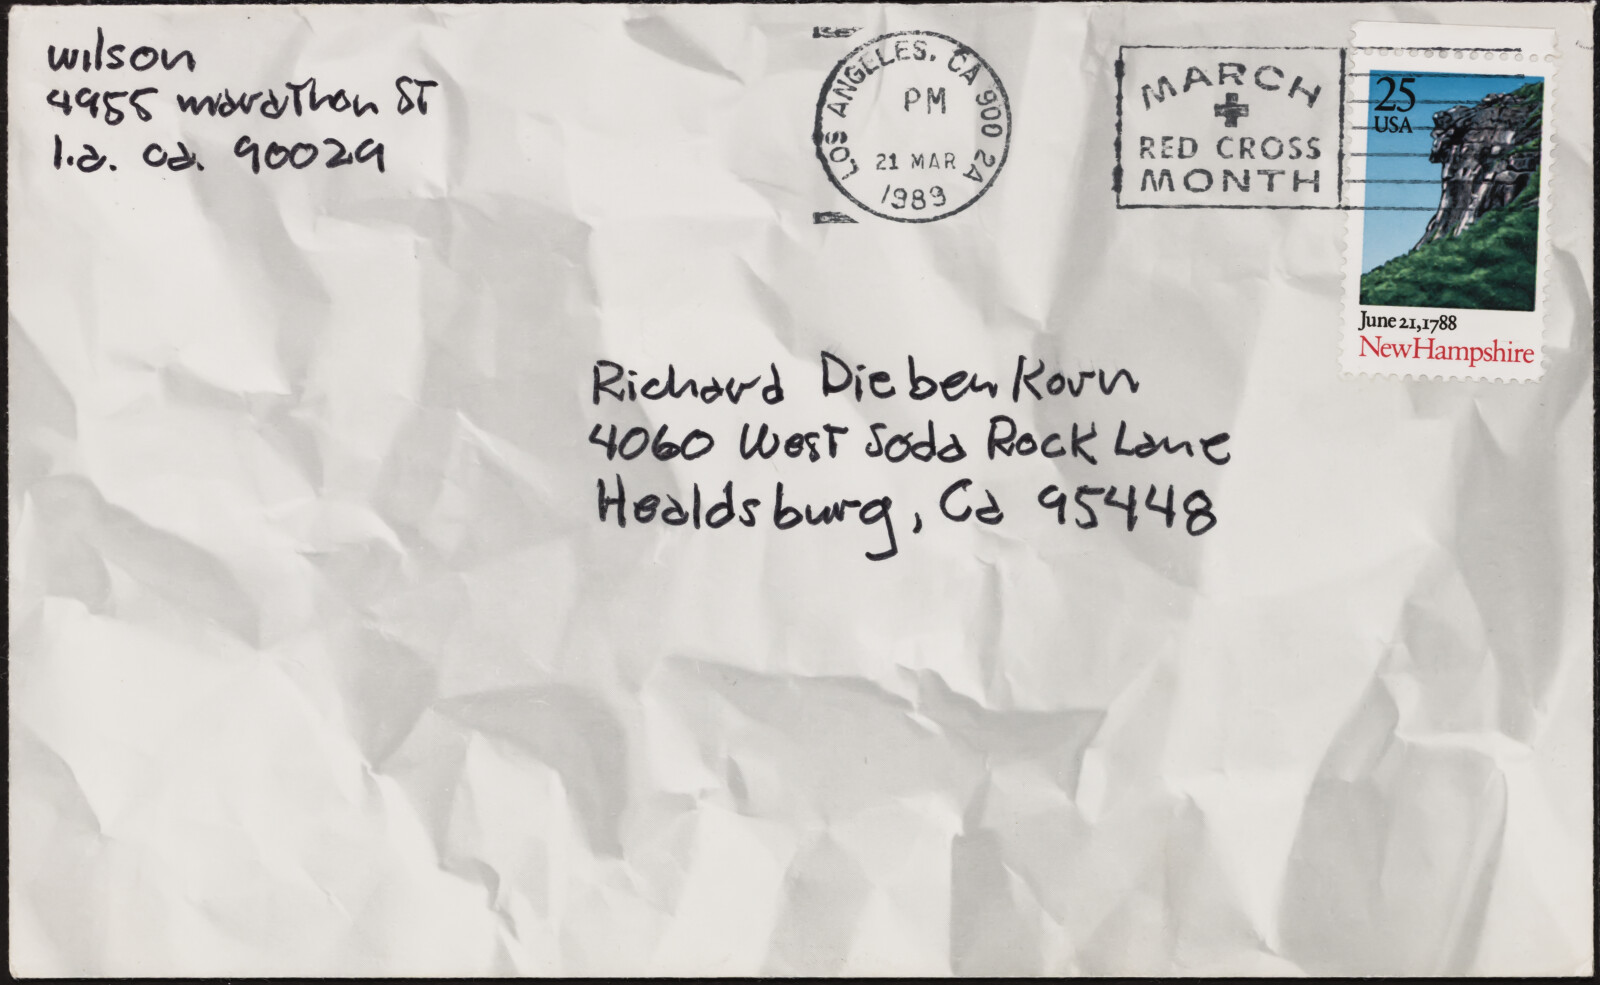 wilson
4955 marathon ST
l.a. ca. 90029
LOS ANGELES, CA 900 2A
PM
21 MAR
1989
MARCH
RED CROSS
MONTH
25
USA
June 21, 1788
New Hampshire
Richard Diebenkorn
4060 West Soda Rock Lane
Healdsburg, Ca 95448